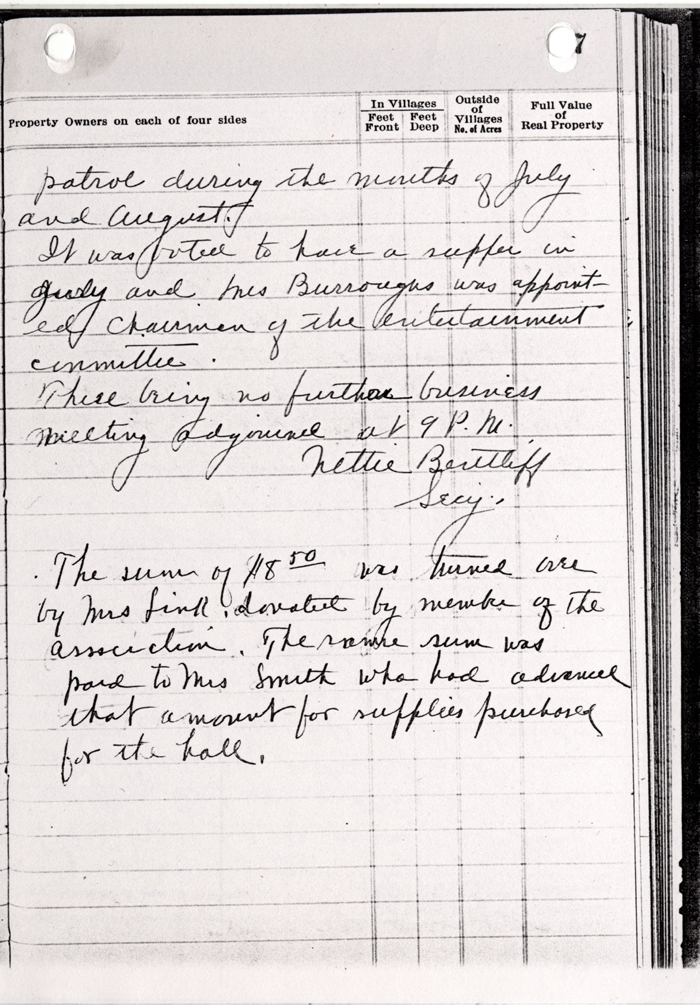 7
Property Owners on each of four sides
In Villages
Feet Front
Feet Deep
Outside of Villages No. of Acres
Full Value of Real Property
patrol during the months of July
and August.
It was voted to have a supper in
July and Mrs Burroughs was appoint-
ed Chairman of the entertainment
committee.
There being no further business
meeting adjourned at 9 P.M.
Nettie
Secy.
The sum of $8 50 was turned over
by Mrs Link, donated by member of the
association. The same sum was
paid to Mrs Smith who had advanced
that amount for supplies purchased
for the hall.